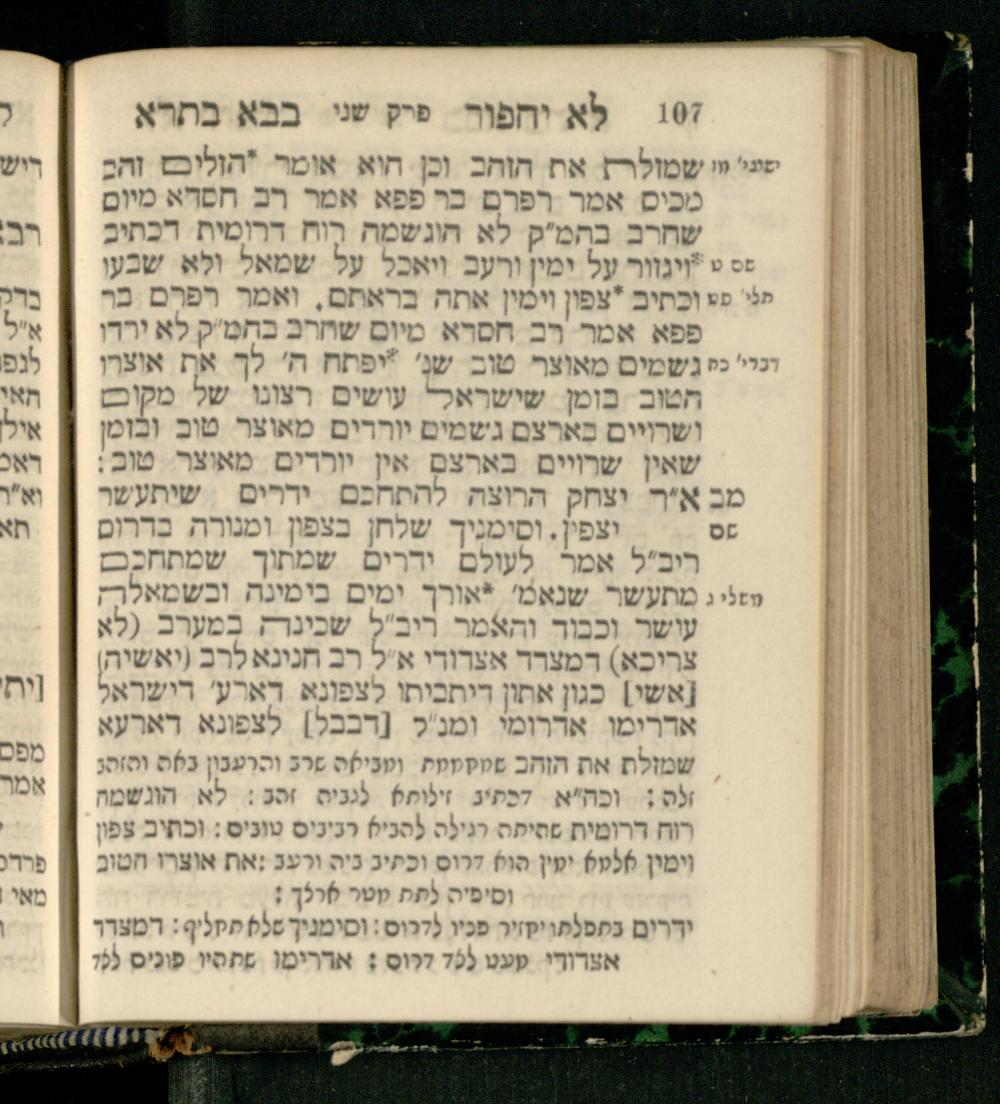 107 לא יחפור פרק שני בבא בתרא
שמזלת את הזהב וכן הוא אומר *הזלים זהב
מכיס אמר רפרם בר פפא אמר רב חסדא מיום
שחרב בהמ"ק לא הוגשמה רוח דרומית דכתיב
שם ט *ויגזור על ימין ורעב ויאכל על שמאל ולא שבעו
תלי' פט וכתיב *צפון וימין אתה בראתם. ואמר רפרם בר
פפא אמר רב חסדא מיום שחרב בהמ"ק לא ירדו
דברי' כח גשמים מאוצר טוב שנ' *יפתח ה' לך את אוצרו
הטוב בזמן שישראל עושים רצונו של מקום
ושרויים בארצם גשמים יורדים מאוצר טוב ובזמן
שאין שרויים בארצם אין יורדים מאוצר טוב:
מב א"ר יצחק הרוצה להתחכם ידרים שיתעשר
שם יצפין. וסימניך שלחן בצפון ומנורה בדרום
ריב"ל אמר לעולם ידרים שמתוך שמתחכם
משלי ג מתעשר שנאמ' *אורך ימים בימינה ובשמאלה
עושר וכבוד והאמר ריב"ל שכינה במערב (לא
צריכא) דמצדד אצדודי א"ל רב חנינא לרב (יאשיה)
[אשי] כגון אתון דיתביתו לצפונא דארע' דישראל
אדרימו אדרומי ומנ"ל [דבבל] לצפונא דארעא
שמזלת את הזהב שמקמעת ומביאה שרב והרעבון באה והזהב
זלה: וכה"א דכתיב זילותא לגביה זהב: לא הוגשמה
רוח דרומית שהיתה רגילה להביא רביבים טובים: וכתיב צפון
וימין אלמא ימין הוא דרום וכתיב ביה ורעב: את אוצרו הטוב
וסיפיה לתת מטר ארצך:
ידרים בתפלתו יחזיר פניו לדרום: וסימניך שלא תחליף: דמצדד
אצדודי מעט לצד דרום: אדרימו שתהיו פונים לצד